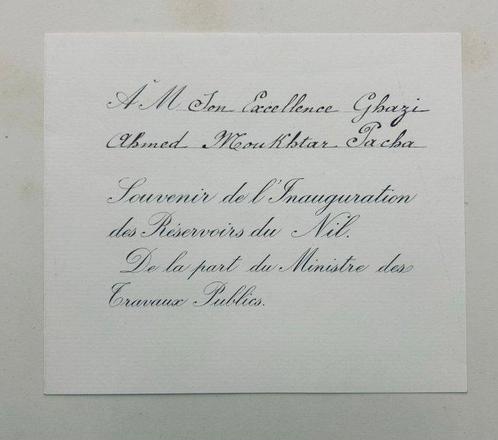 A M Son Excellence Ghazi
Ahmed Moukhtar Pacha
Souvenir de l'Inauguration
des Réservoirs du Nil.
De la part du Ministre des
Travaux Publics.